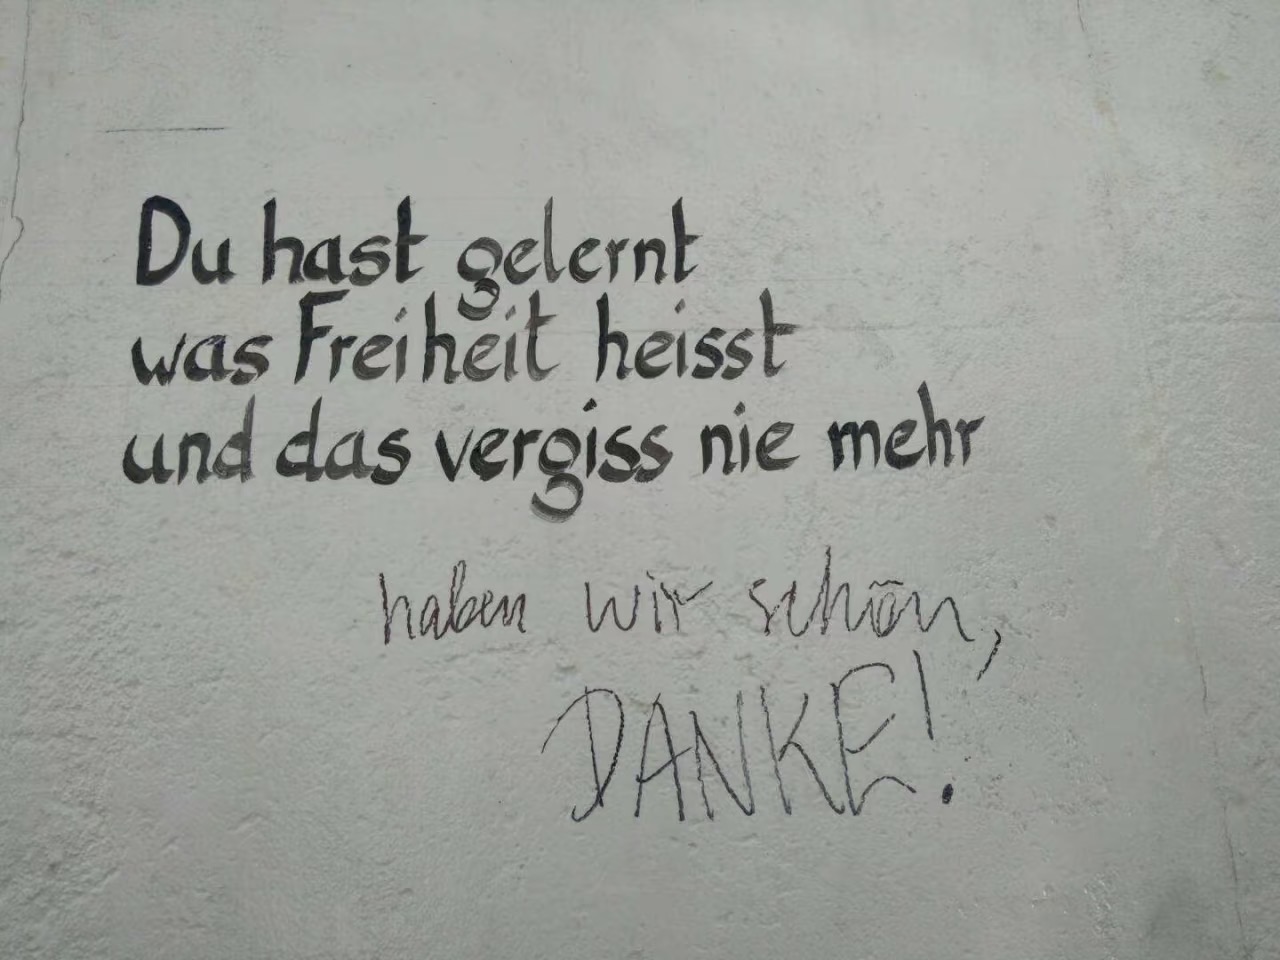 Du hast gelernt
was Freiheit heisst
und das vergiss nie mehr
haben wir schön,
DANKE!